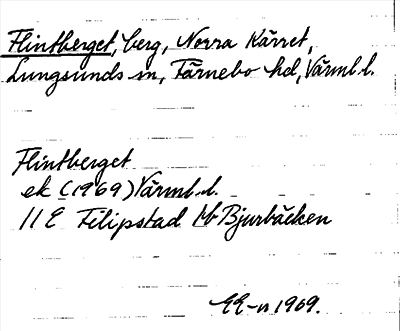 Flintberget, berg, Norra Kärret,
Lungsunds sn, Färnebo hd, Värml. l.
Flintberget
ek (1969) Värml. l.
11 E Filipstad Bjurbäcken
1969.